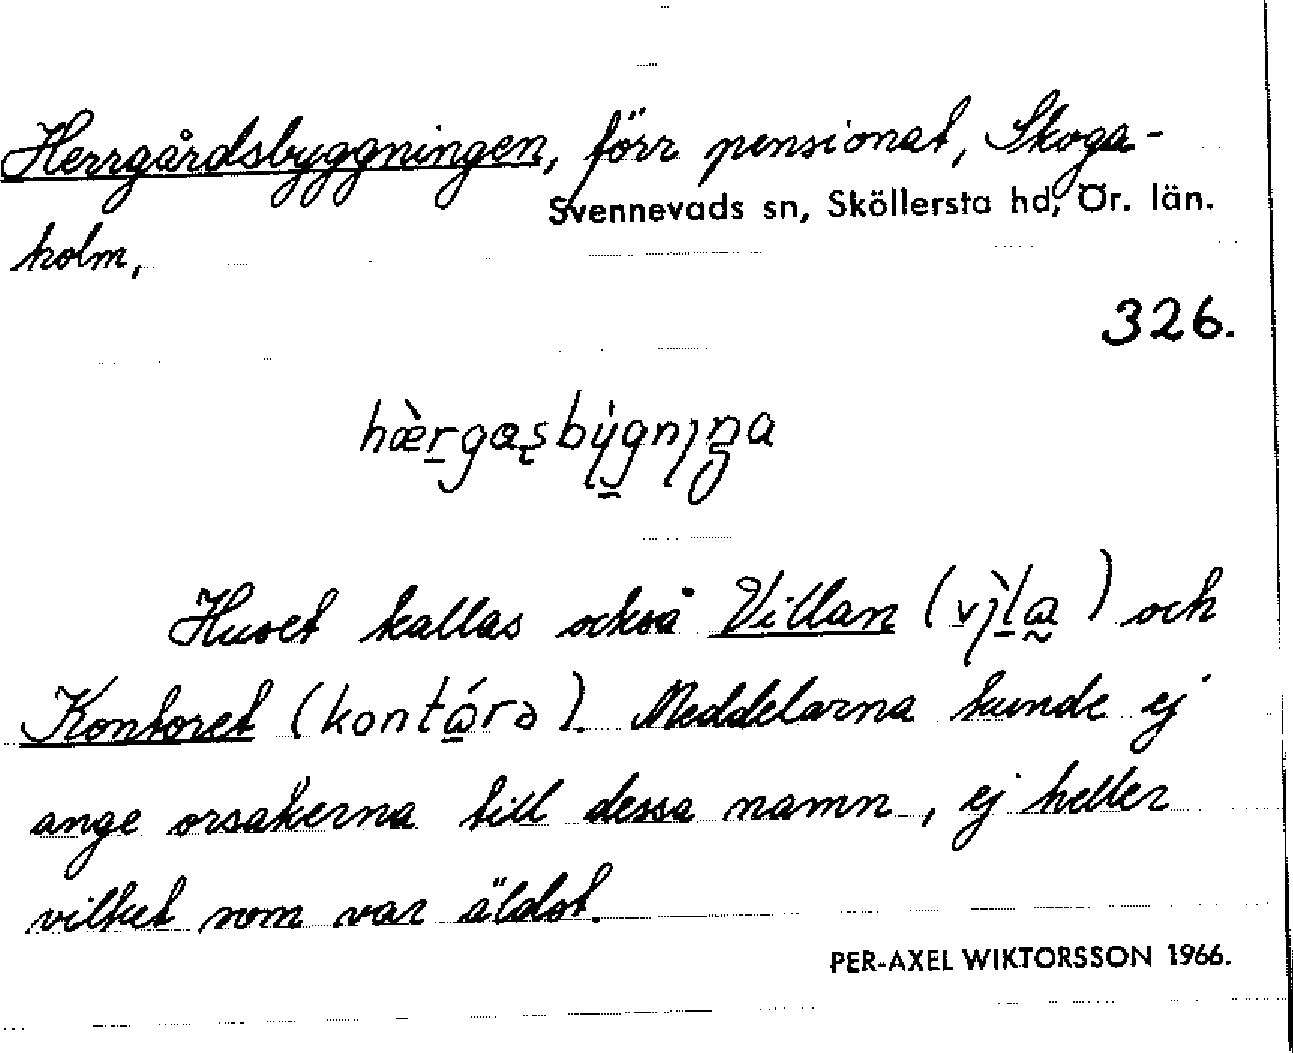 Herrgårdsbyggningen, förr pensionat, Skoga-
Svennevads sn, Sköllersta hd, Ör. län.
holm,
326.
hæ̀r̲gaʂbỳg̲nıŋa
Huset kallas också Villan (vı̀l̲a̰) och
Kontoret (kontó̲rə). Meddelarna kunde ej
ange orsakerna till dessa namn, ej heller
vilket som var äldst.
PER-AXEL WIKTORSSON 1966.